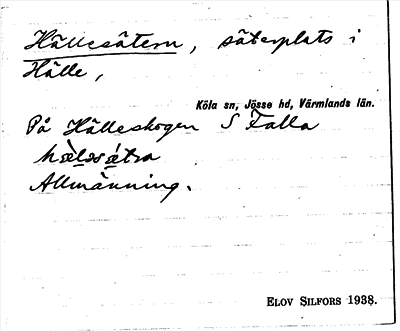 Hällesätern, säterplats i
Hälle,
Köla sn, Jösse hd, Värmlands län.
På Hälleskogen S Falla
hælesætra
Allmänning.
ELOV SILFORS 1938.